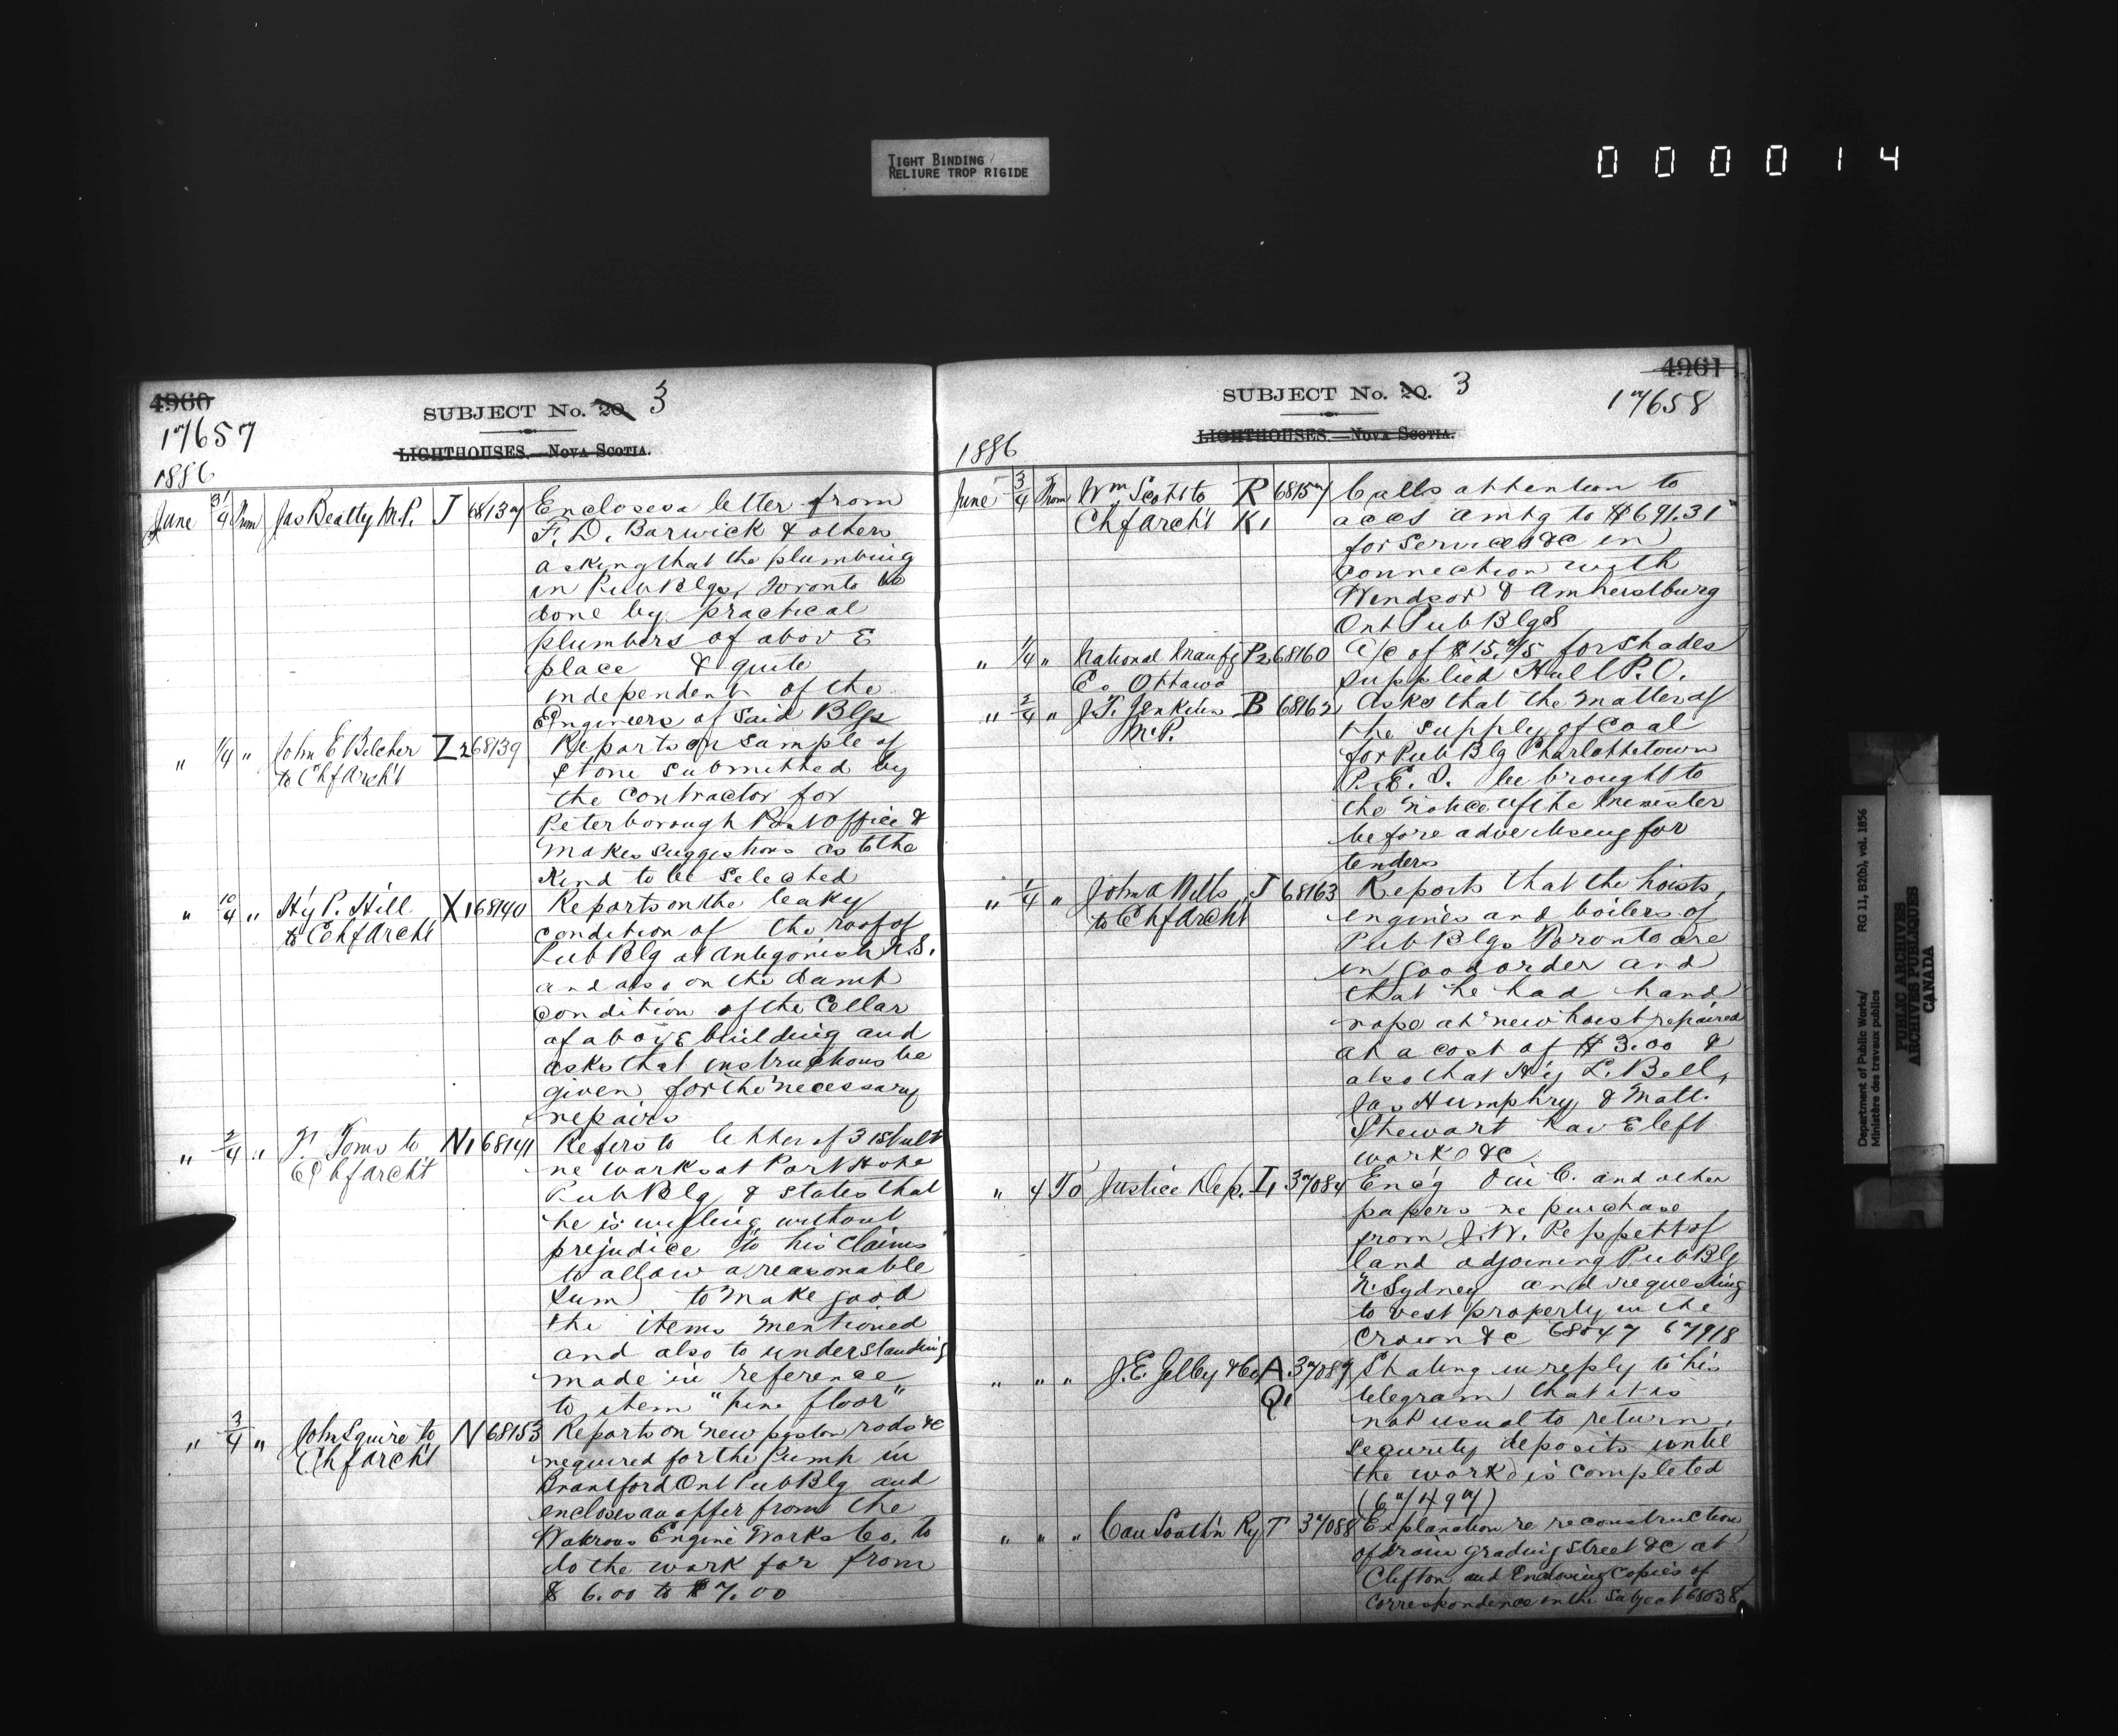 TIGHT BINDING /
RELIURE TROP RIGIDE
000014
4960
17657
SUBJECT No. 20. 3
LIGHTHOUSES.—NOVA SCOTIA.
1886
June 31/4 From Jas Beatty M.P. J 68137 Encloses a letter from
F. D. Barwick & others
asking that the plumbing
in Pub Blgs, Toronto be
done by practical
plumbers of above
place & quite
independent of the
Engineers of said Blgs
" 1/4 " John E Belcher Z2 68139 Reports on sample of
to Chf Archt stone submitted by
the contractor for
Peterborough Post Office &
makes suggestions as to the
kind to be selected
" 10/4 " Hy P. Hill X1 68140 Reports on the leaky
to Chf Archt condition of the roof of
Pub Blg at Antigonish N.S.
and also on the damp
condition of the Cellar
of above building and
asks that instructions be
given for the necessary
repairs
" 2/4 " Toms to N1 68141 Refers to letter of 31st ult
Chf Archt re works at Port Hope
Pub Blg & states that
he is willing without
prejudice to his claims
to allow a reasonable
sum to make good
the items mentioned
and also to understanding
made in reference
to item "pine floor"
" 3/4 " John Squire to N 68153 Reports on new piston rods &c
Chf Archt required for the Pump in
Brantford Ont Pub Blg and
encloses an offer from the
Waterous Engine Works Co. to
do the work for from
$ 6.00 to $ 7.00
4961
17658
SUBJECT No. 20. 3
LIGHTHOUSES.—NOVA SCOTIA.
1886
June 3/4 From Wm Scott to R 68157 Calls attention to
Chf Archt K1 accs amtg to $691.31
for services &c in
connection with
Windsor & Amherstburg
Ont Pub Blgs
" 1/4 " National Manufg P2 68160 A/c of $15.75 for shades
Co Ottawa supplied Hull P.O.
" 2/4 " J.T. Jenkins B 68162 Asks that the matter of
M.P. the supply of Coal
for Pub Blg Charlottetown
P.E.I. be brought to
the notice of the Minister
before advertising for
tenders
" 1/4 " John A Wills J 68163 Reports that the hoists,
to Chf Archt engines and boilers of
Pub Blgs Toronto are
in good order and
that he had hand
rope at new hoist repaired
at a cost of $ 3.00 &
also that Hy L. Bell,
Jas Humphry & Matt.
Stewart have left
work &c
" 4 To Justice Dep. I1 37084 Encg O in C. and other
papers re purchase
from J.W. Peppett of
land adjoining Pub Blg
N. Sydney and requesting
to vest property in the
Crown &c 68047 67918
" " " J.E. Gelby & Co A 37087 Stating in reply to his
Q1 telegram that it is
not usual to return
security deposits until
the work is completed
(67497)
" " " Can South'n Ry T 37088 Explanation re reconstruction
of drain grading street &c at
Clifton and Enclosing Copies of
correspondence on the subject 68038
Department of Public Works/
Ministère des travaux publics
RG 11, B2(b), vol. 1856
PUBLIC ARCHIVES
ARCHIVES PUBLIQUES
CANADA